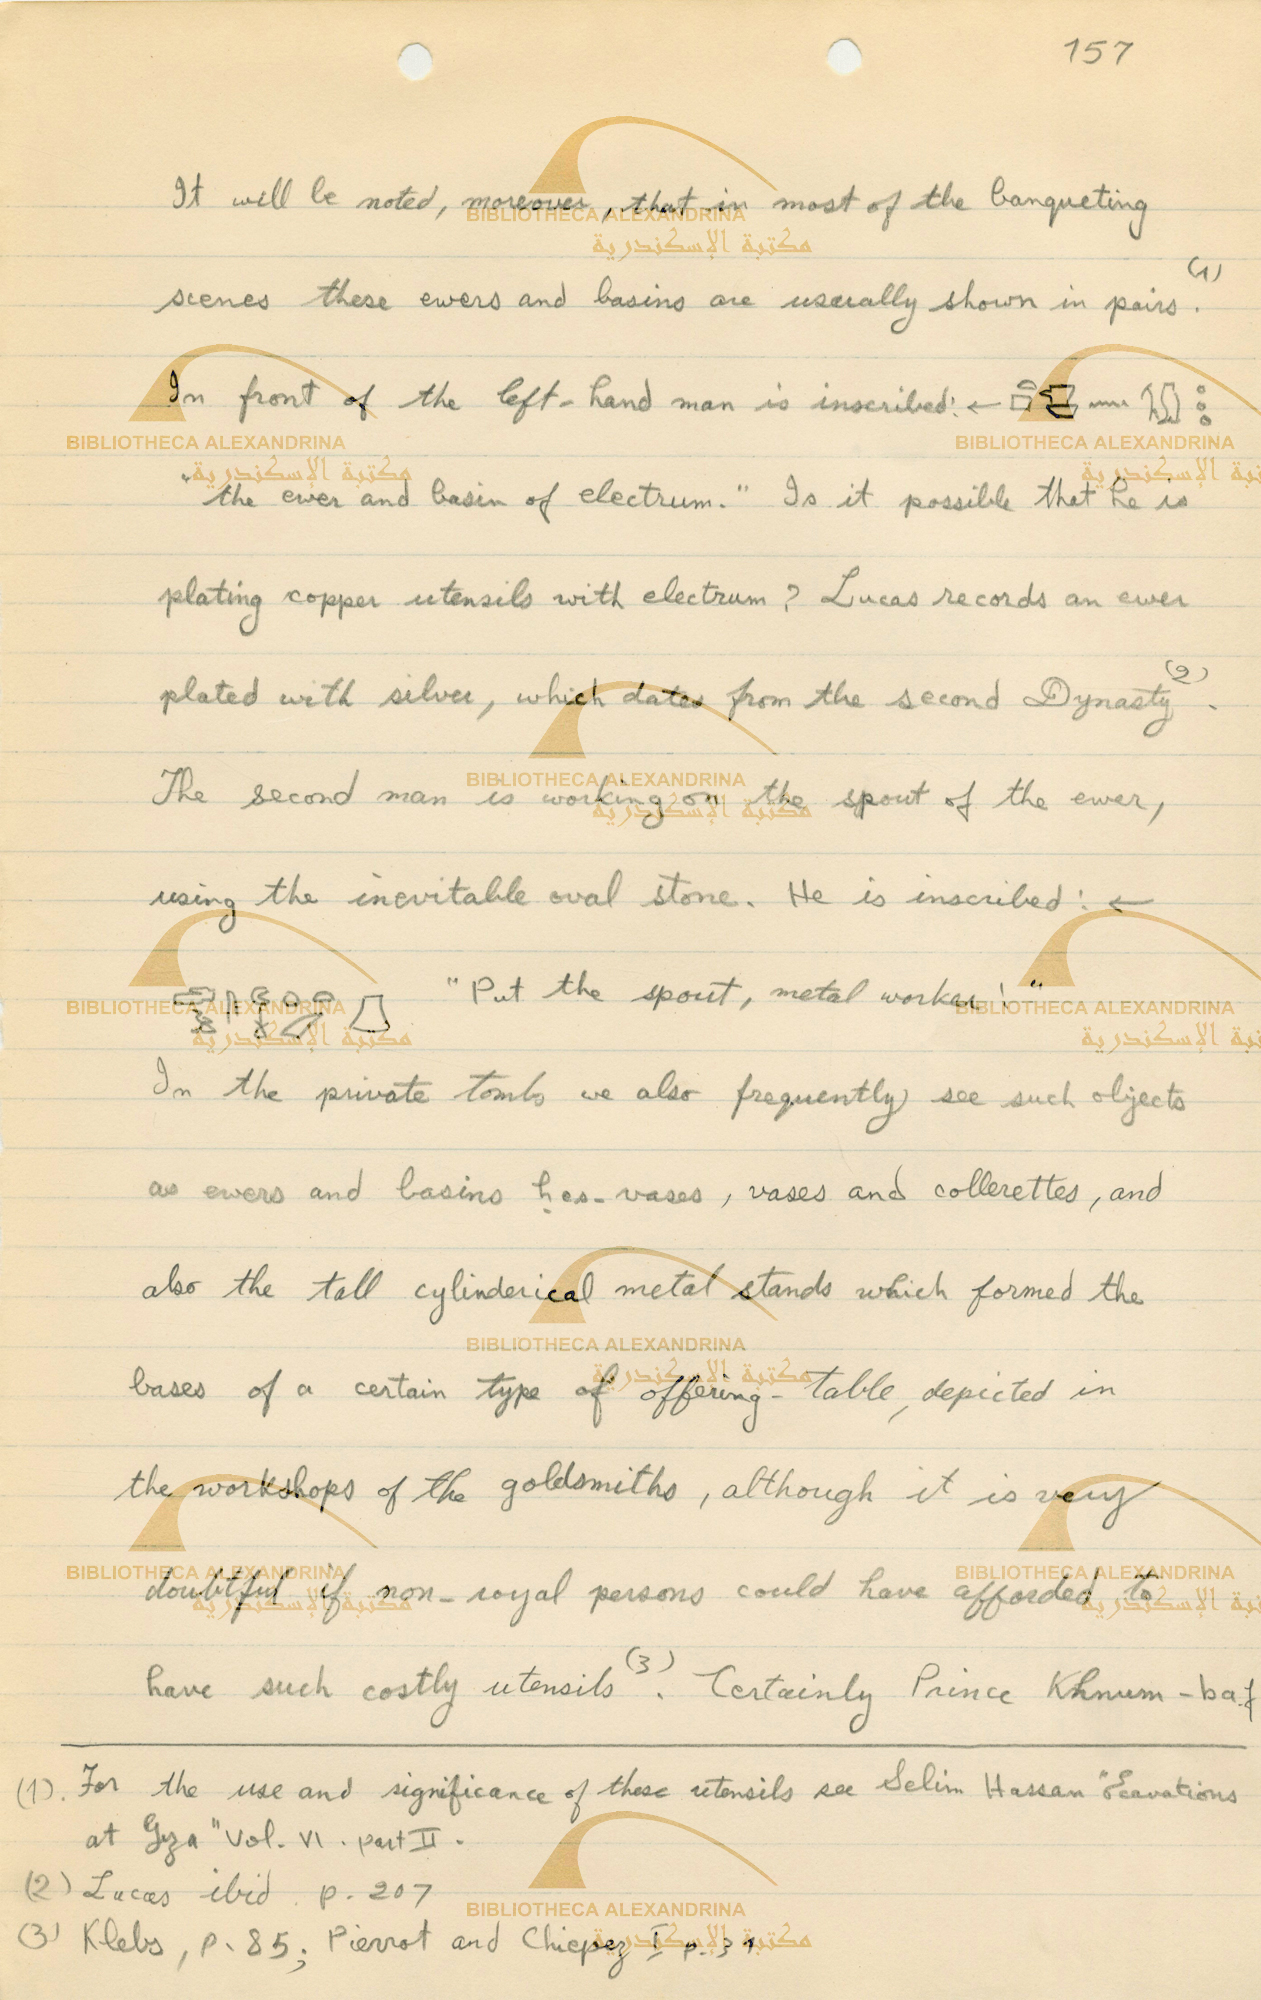 157
It will be noted, moreover, that in most of the banqueting
scenes these ewers and basins are usually shown in pairs.(1)
In front of the left-hand man is inscribed: ←
"the ewer and basin of electrum." Is it possible that he is
plating copper utensils with electrum? Lucas records an ewer
plated with silver, which dates from the second Dynasty(2).
The second man is working on the spout of the ewer,
using the inevitable oval stone. He is inscribed: ←
"Put the spout, metal worker!"
In the private tombs we also frequently see such objects
as ewers and basins ḥes-vases, vases and collerettes, and
also the tall cylinderical metal stands which formed the
bases of a certain type of offering-table, depicted in
the workshops of the goldsmiths, although it is very
doubtful if non-royal persons could have afforded to
have such costly utensils(3). Certainly Prince Khnum-ba.f
(1). For the use and significance of these utensils see Selim Hassan "Excavations
at Giza" Vol. VI. part II.
(2) Lucas ibid p. 207
(3) Klebs, p. 85; Pierrot and Chiepez I p.
BIBLIOTHECA ALEXANDRINA
مكتبة الإسكندرية